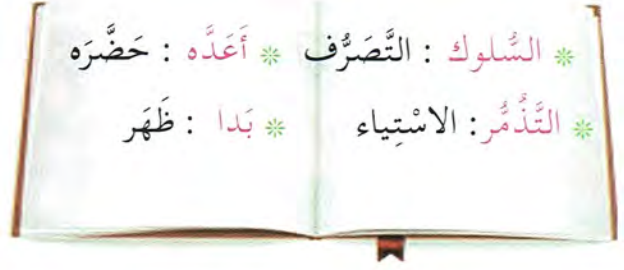 * السُّلوك : التَّصَرُّف * أَعَدَّه : حَضَّرَه
* التَّذَمُّر : الاسْتِياء * بَدا : ظَهَر